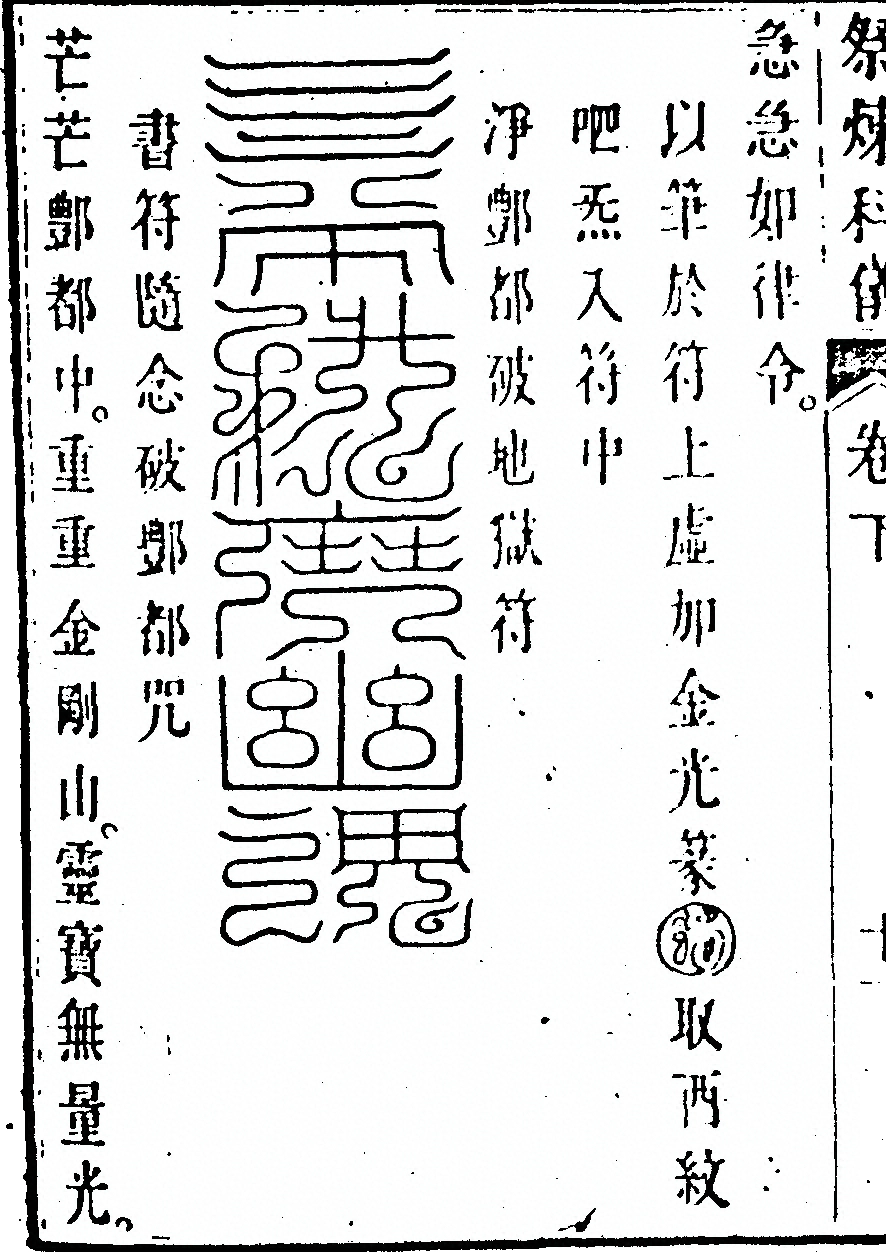 祭煉科儀 卷下 十
急急如律令。
以筆於符上虛加金光篆取西紋
吧炁入符中
淨酆都破地獄符
書符隨念破酆都咒
芒芒酆都中。重重金剛山。靈寶無量光。